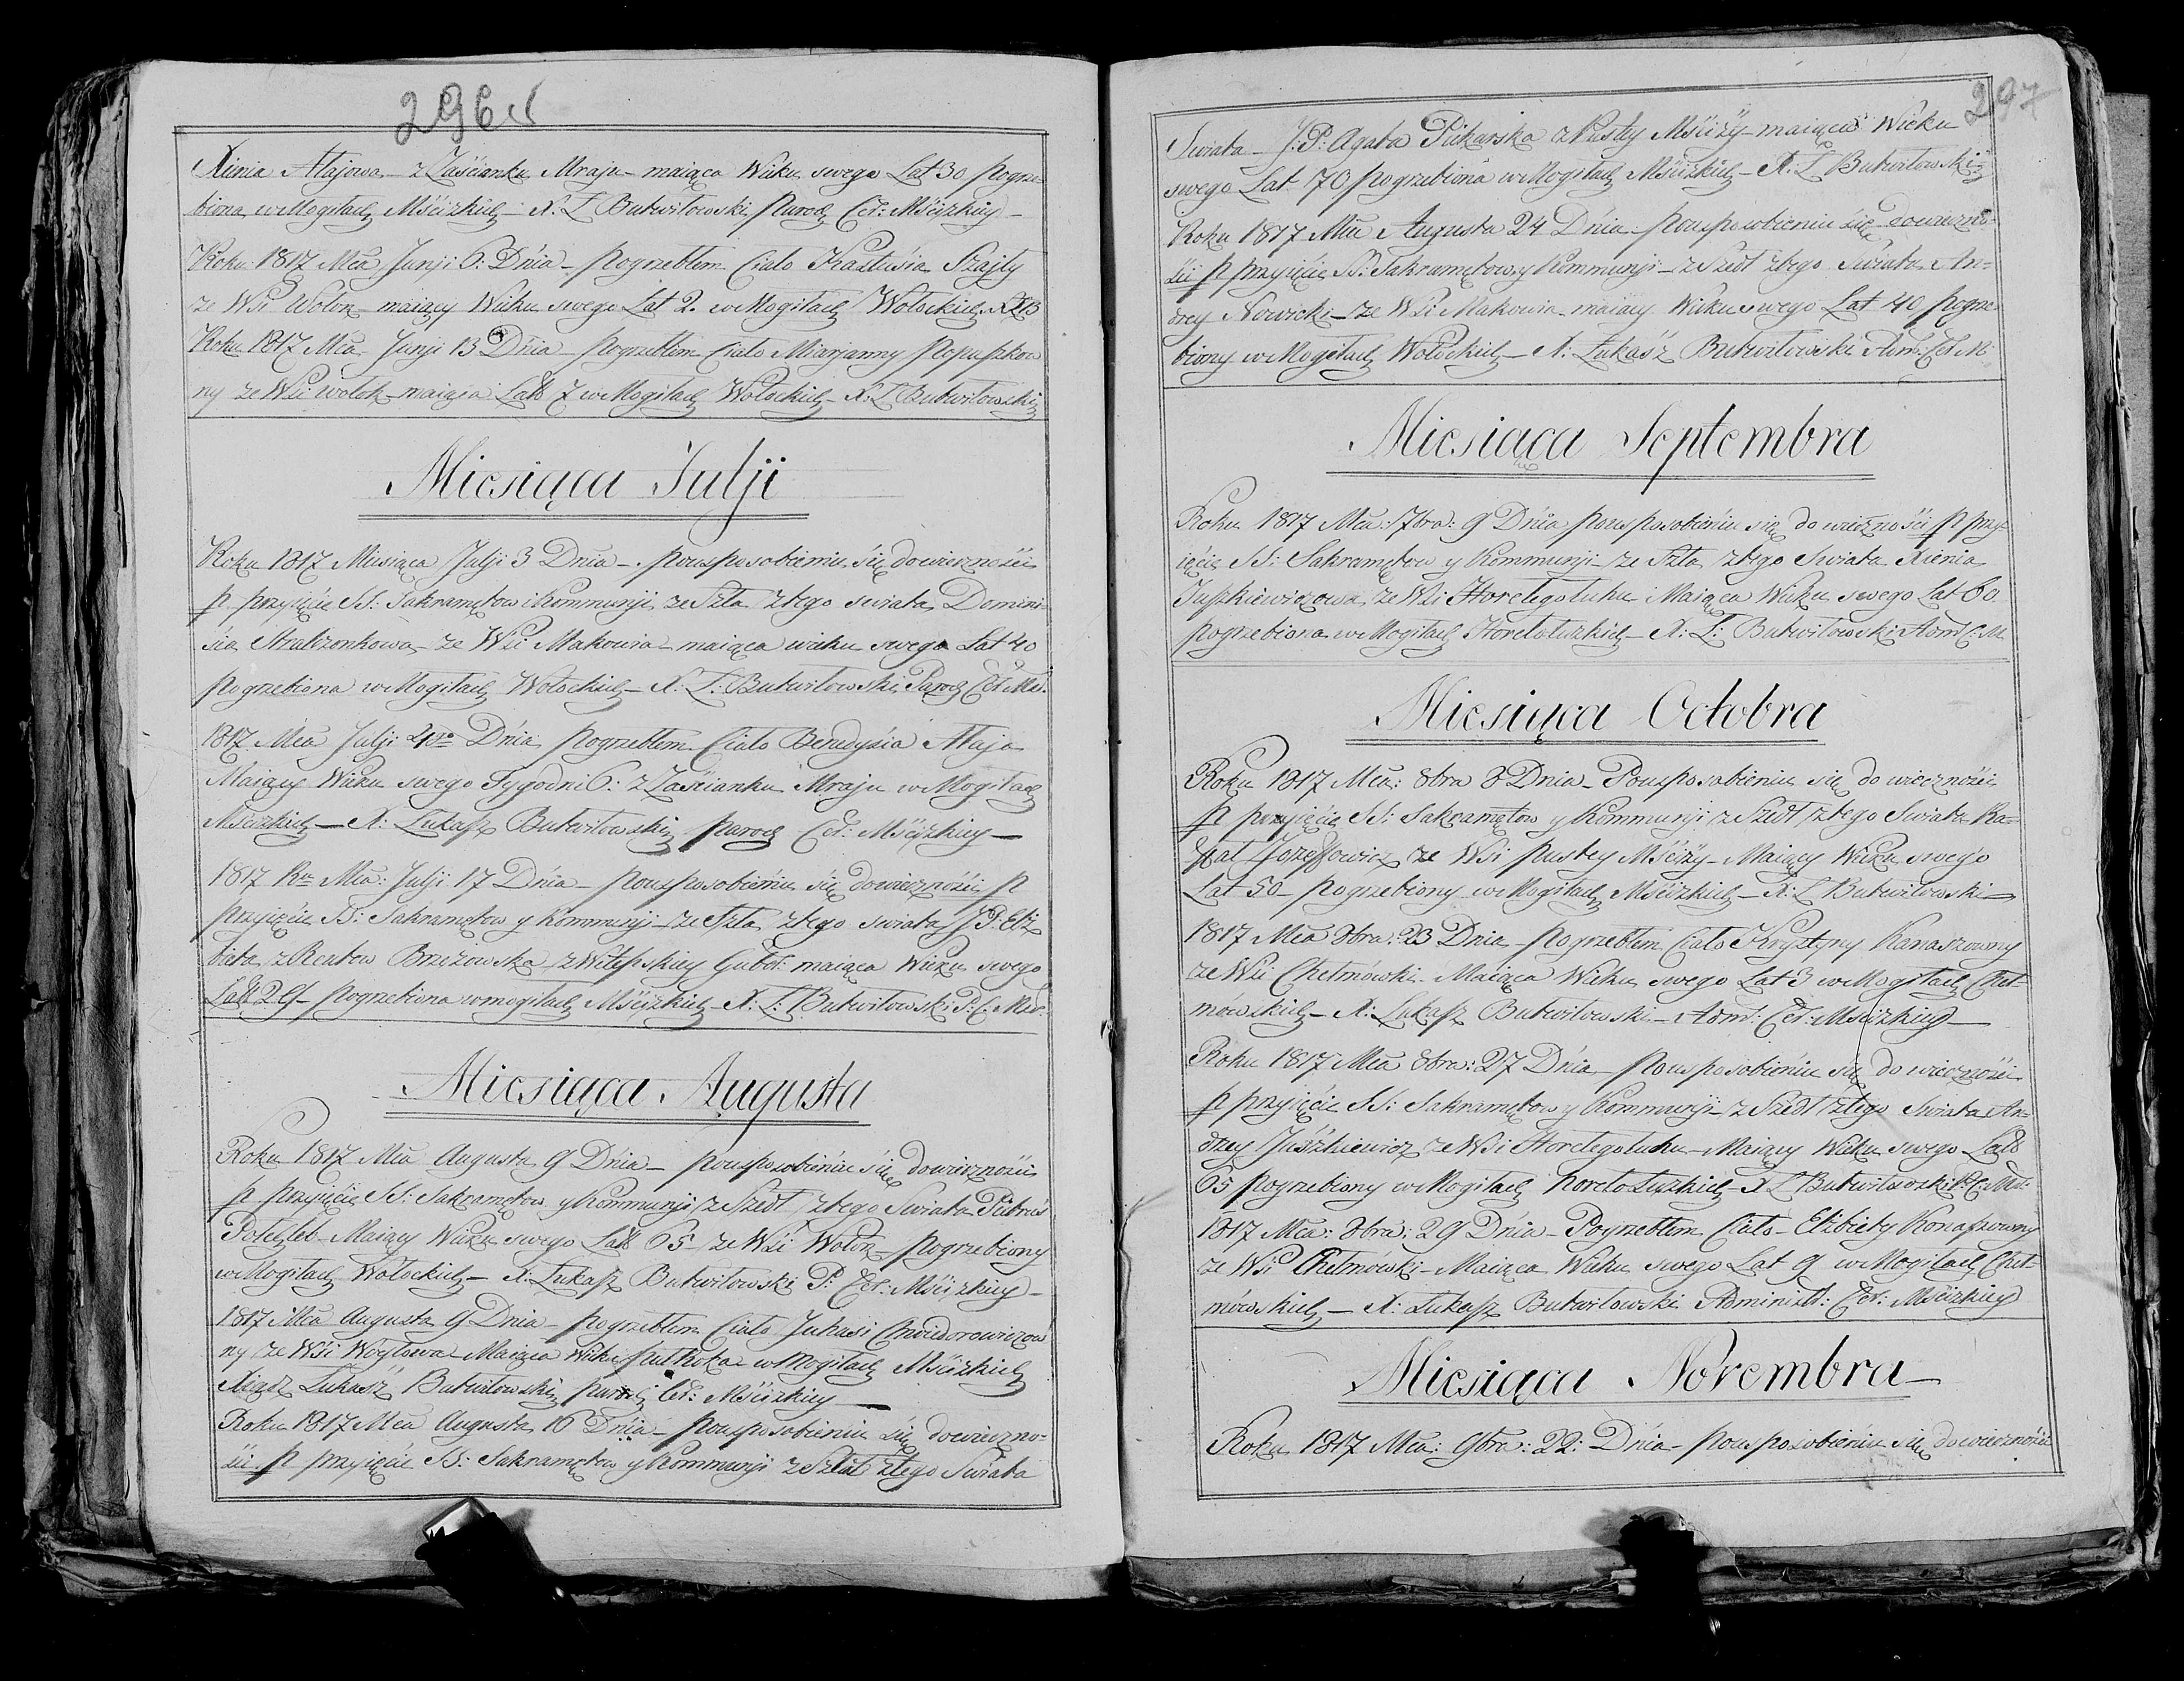 296
Xienia Ałajowa – z Zaścianku Mraju – maiąca Wieku swego Lat 30 pogrze-
biona w Mogiłach Mściżkich – X: Ł Butwiłowski Paroch Cer: Mściżkiey –
Roku 1817 Mca Junji 6: Dnia – pogrzebłem Ciało Szajty
ze Wsi Wołok maiący Wieku swego Lat 2. w Mogiłach Wołockich X Ł B
Roku 1817 Mca Junji 13 Dnia – pogrzebłem Ciało Marjanny
ny ze Wsi Wołok – maiąca Latt 7 w Mogiłach Wołockich – X: Ł Butwiłowski
Miesiąca Julji
Roku 1817 Miesiąca Julji 3 Dnia – pousposobieniu się do wieczności
p przyięcie SS: Sakramętow i Kommunji ze Szła z tego swiata Domini-
sia ze Wsi Makowia – maiąca wieku swego Lat 40
pogrzebiona w Mogiłach Wołockich – X: Ł: Butwiłowski Paroch Cer Mści:
1817 Mca Julji Dnia pogrzebłem Ciało Benedysia Ałaja
Maiący Wieku swego Tygodni 6: z Zaścianku Mraju w Mogiłach
Mściżkich – X: Łukasz Butwiłowski paroch Cer: Mściżkiey –
1817 Ru Mca: Julji 17 Dnia – pousposobieniu się do wieczności p
przyięcie SS: Sakramętow y Kommunji – ze Szła z tego swiata J P: Elż
bieta z Brzezowska z Witepskiey Guber: maiąca Wieku swego
Latt 29 – pogrzebiona w mogiłach Mściżkich – X: Ł: Butwiłowski P: C: Mści:
Miesiąca Augusta
Roku 1817 Mca Augusta 9 Dnia – pousposobieniu się do wieczności
p przyięcie SS: Sakramętow y Kommunji z Szedł z tego Swiata Piotruś
Maiący Wieku swego Latt 65 – ze Wsi Wołok – pogrzebiony
w Mogiłach Wołockich – X: Łukasz Butwiłowski P: Cer: Mściżkiey –
1817 Mca Augusta 9 Dnia – pogrzebłem Ciało Juhasi Chwiedorowiczow
ny ze Wsi Woytowa – Maiąca Wieku puł Roka w Mogiłach Mściżkich
Xiądz Łukasz Butwiłowski paroch Cer: Mściżkiey –
Roku 1817 Mca Augusta 16 Dnia – pousposobieniu się do wieczno-
ści p przyięcie SS: Sakramętow y Kommunji z Szła z tego Swiata
297
Swiata – J: P: Agata Piekarska z Pustey Mściży – maiąca Wieku
swego Lat 70 pogrzebiona w Mogiłach Mściżkich – X: Ł Butwiłowski –
Roku 1817 Mca Augusta 24 Dnia pousposobieniu się do wieczno-
ści p przyięcie SS: Sakramętow y Kommunji – z Szedł z tego Swiata An-
drey Nowicki – ze Wsi Makowia maiący Wieku swego Lat 40 pogrze-
biony w Mogiłach Wołockich – X: Łukasz Butwiłowski Adm: Cer M
Miesiąca Septembra
Roku 1817 Mca: 7bra: 9 Dnia pousposobieniu się do wieczności p przy-
ięcie SS: Sakramętow y Kommunji – ze Szła z tego Swiata Xienia
Juszkiewiczowa ze Wsi Horełegołuhu Maiąca Wieku swego Lat 60.
pogrzebiona w Mogiłach Horełołuzkich – X: Ł: Butwiłowski Adm C: M
Miesiąca Octobra
Roku 1817 Mca: 8bra 8 Dnia – Pousposobieniu się do wieczności
p przyięcie SS: Sakramętow y Kommunji z Szedł z tego Swiata Ra-
fał Jozeffowicz ze Wsi Pustey Mściży – Maiący Wieku swego
Lat 50 – pogrzebiony w Mogiłach Mściżkich – X: Ł Butwiłowski –
1817 Mca 8bra: 23 Dnia – Pogrzebłem Ciało Krystyny Karaszowny
ze Wsi Chełmówki – Maiąca Wieku swego Lat 3 w Mogiłach Cheł-
mówskich – X: Łukasz Butwiłowski – Adm: Cer: Mściżkiey –
Roku 1817 Mca 8bra: 27 Dnia – pousposobieniu się do wieczności
p przyięcie SS: Sakramętow y Kommunji – z Szedł z tego Swiata An-
drzey Juszkiewicz ze Wsi Horełegołuhu – Maiący Wieku swego Latt
65 pogrzebiony w Mogiłach horełołuzkich – X Ł Butwiłowski
1817 Mca: 8bra: 29 Dnia – Pogrzebłem Ciało – Elżbiety Konaszowny
ze Wsi Chełmówki – Maiąca Wieku swego Lat 9 w Mogiłach Cheł-
mówskich – X: Łukasz Butwiłowski Administ: Cer: Mściżkiey
Miesiąca Novembra –
Roku 1817 Mca: 9bra: 22: Dnia – pousposobieniu się do wieczności